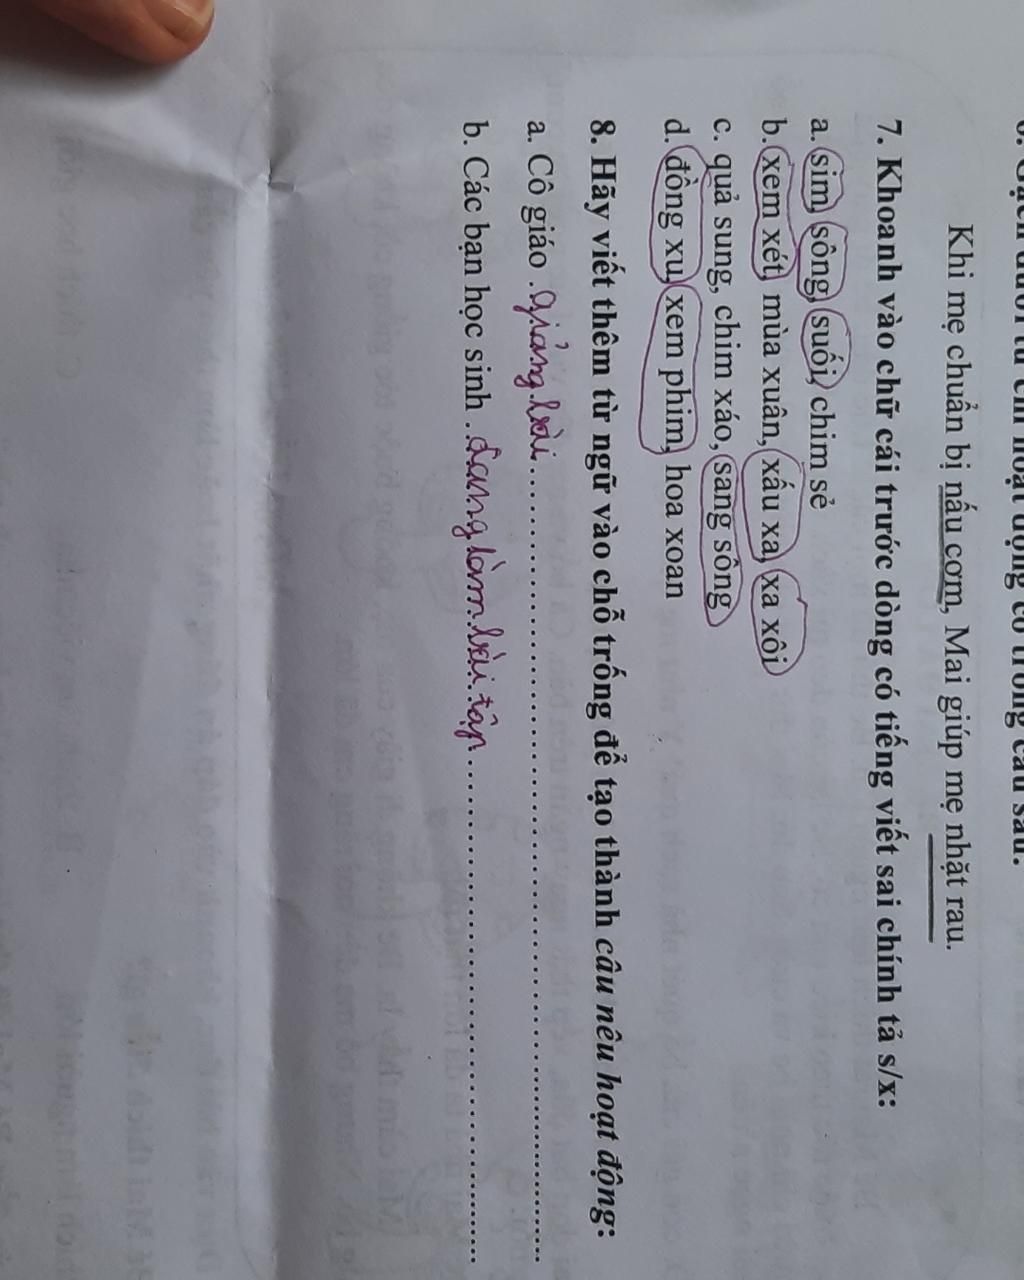 từ chỉ hoạt động có trong câu sau:
Khi mẹ chuẩn bị nấu cơm, Mai giúp mẹ nhặt rau.
7. Khoanh vào chữ cái trước dòng có tiếng viết sai chính tả s/x:
a. sim, sông, suối, chim sẻ
b. xem xét, mùa xuân, xấu xa, xa xôi
c. quả sung, chim xáo, sang sông
d. đồng xu, xem phim, hoa xoan
8. Hãy viết thêm từ ngữ vào chỗ trống để tạo thành câu nêu hoạt động:
a. Cô giáo giảng bài
b. Các bạn học sinh đang làm bài tập